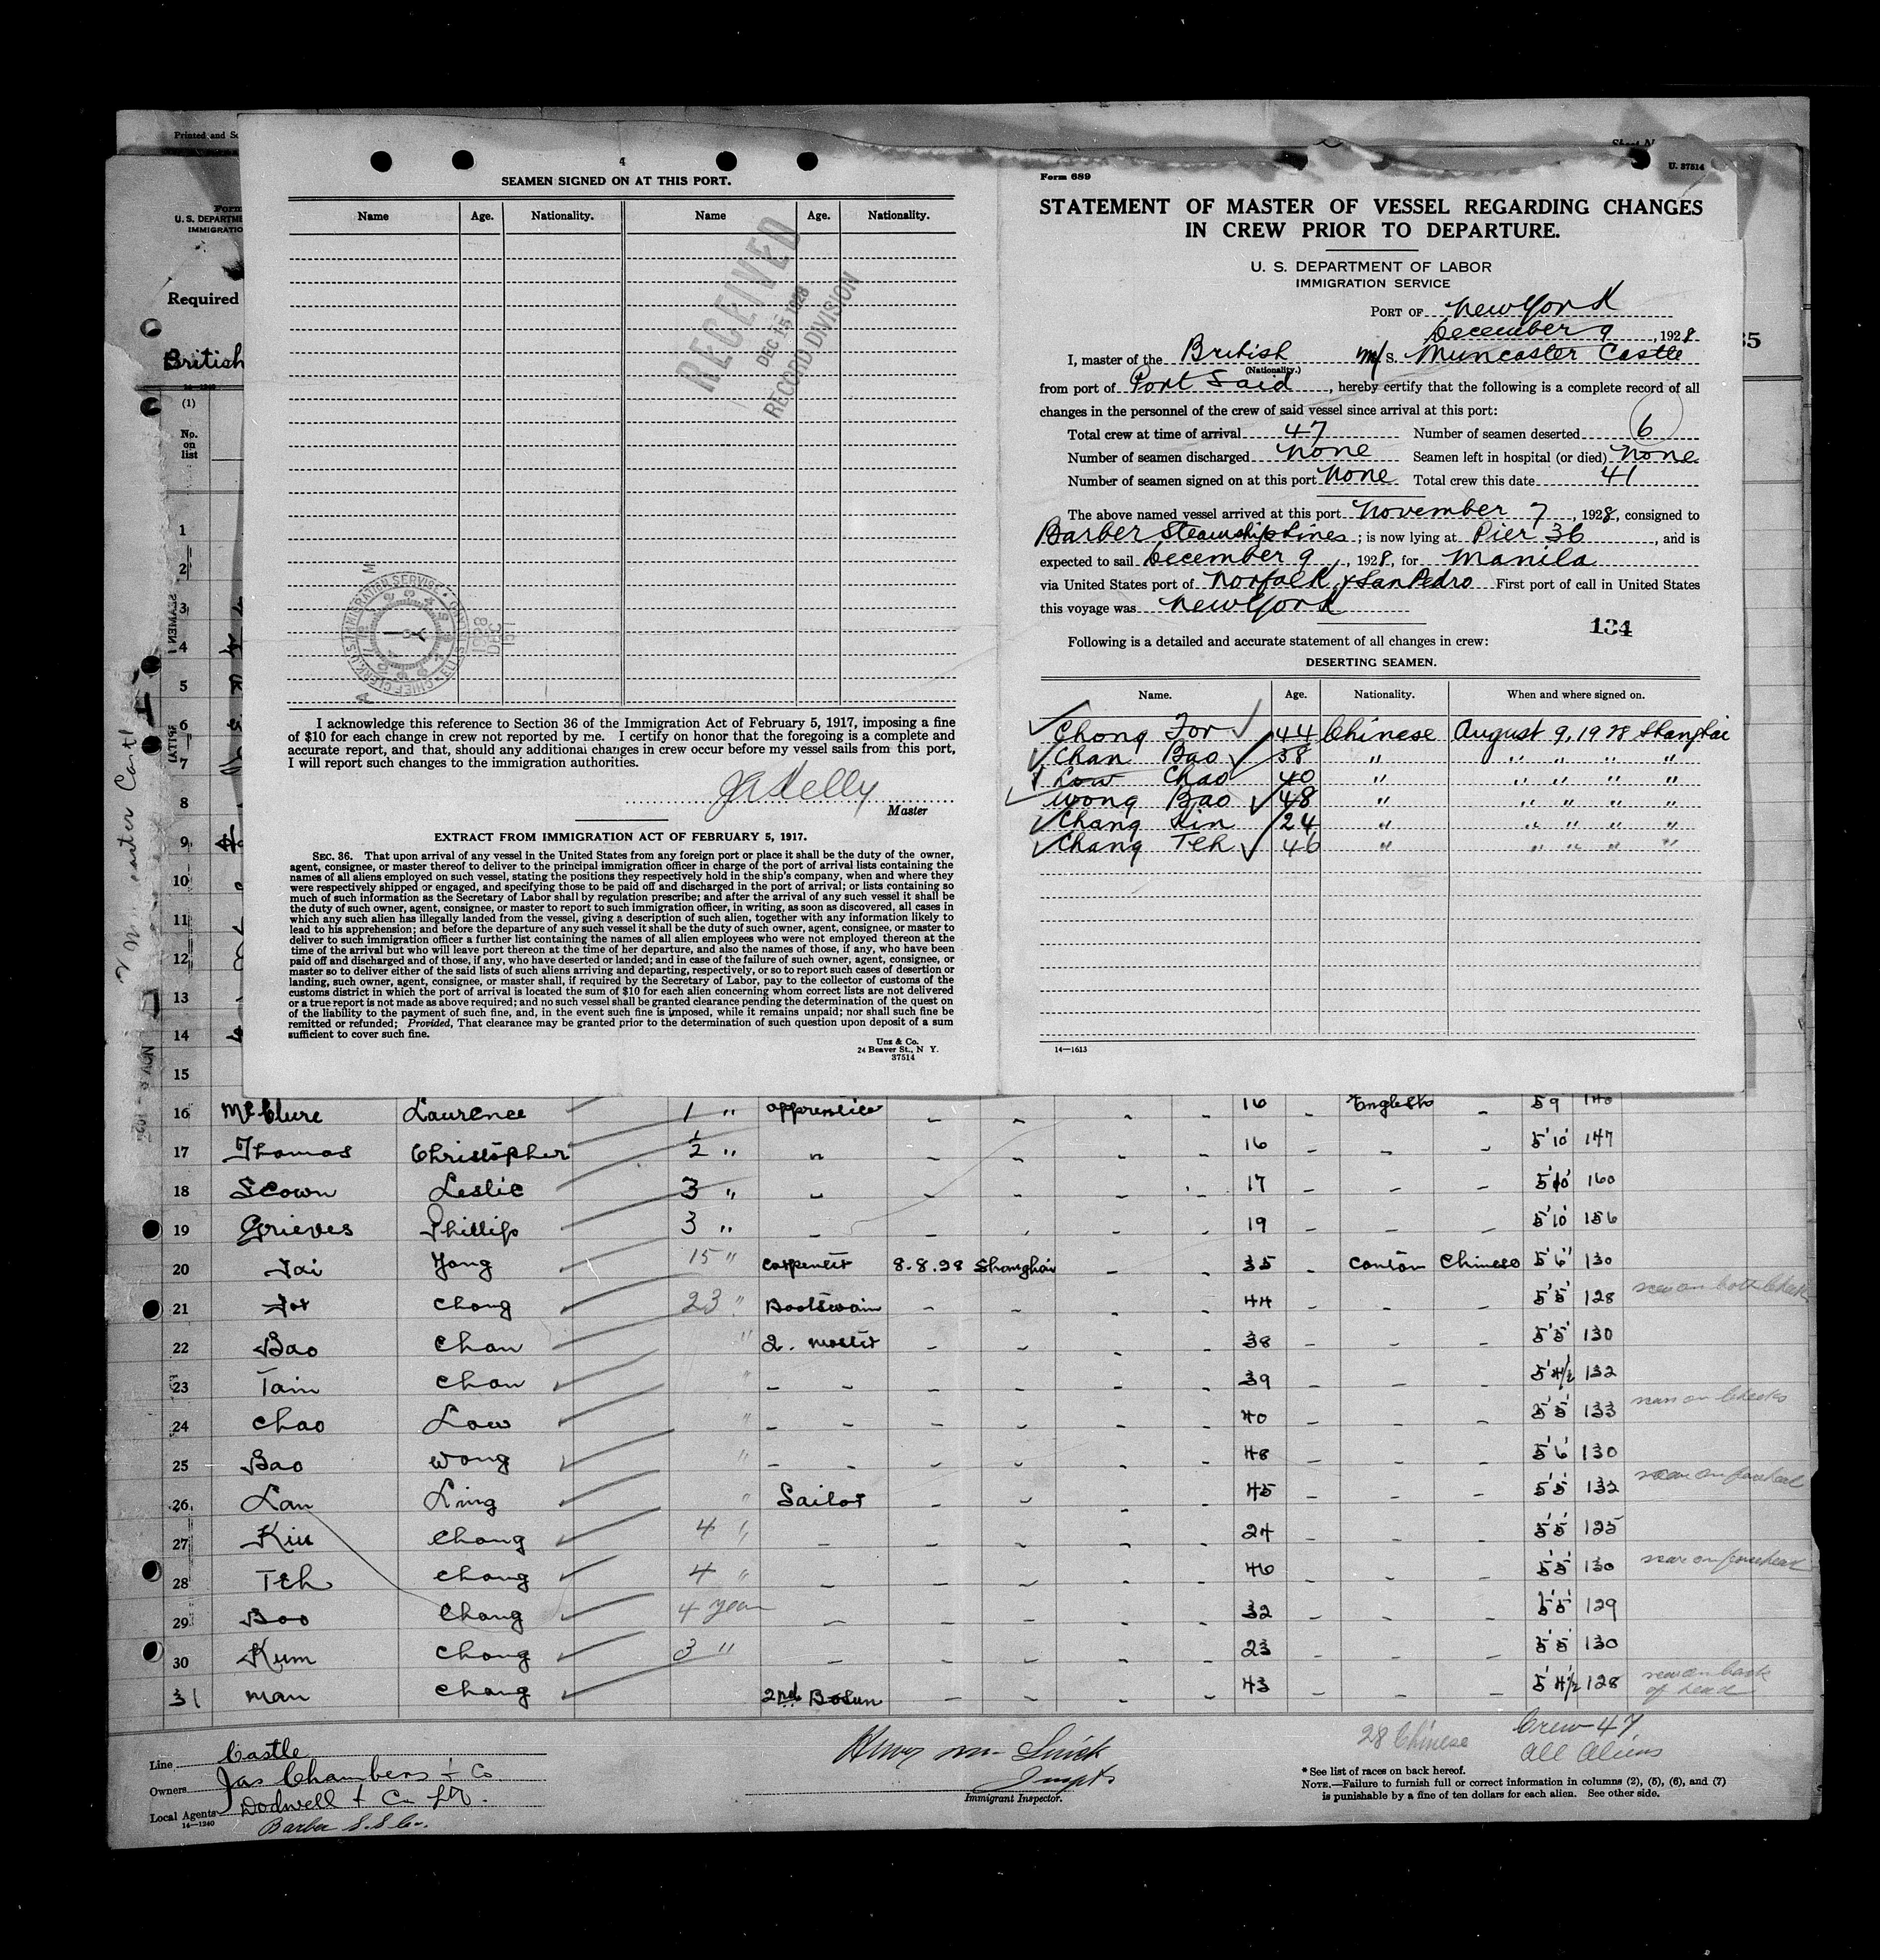 Printed and
Form
U. S. DEPARTME
IMMIGRATIO
Required
British
14—1240
(1)
No.
on
list
1
2
3
4
5
6
7
8
9
10
11
12
13
14
15
4
SEAMEN SIGNED ON AT THIS PORT.
Name Age. Nationality. Name Age. Nationality.
RECEIVED
DEC 15 1928
RECORD DIVISION
I acknowledge this reference to Section 36 of the Immigration Act of February 5, 1917, imposing a fine
of $10 for each change in crew not reported by me. I certify on honor that the foregoing is a complete and
accurate report, and that, should any additional changes in crew occur before my vessel sails from this port,
I will report such changes to the immigration authorities.
Master
EXTRACT FROM IMMIGRATION ACT OF FEBRUARY 5, 1917.
SEC. 36. That upon arrival of any vessel in the United States from any foreign port or place it shall be the duty of the owner,
agent, consignee, or master thereof to deliver to the principal immigration officer in charge of the port of arrival lists containing the
names of all aliens employed on such vessel, stating the positions they respectively hold in the ship's company, when and where they
were respectively shipped or engaged, and specifying those to be paid off and discharged in the port of arrival; or lists containing so
much of such information as the Secretary of Labor shall by regulation prescribe; and after the arrival of any such vessel it shall be
the duty of such owner, agent, consignee, or master to report to such immigration officer, in writing, as soon as discovered, all cases in
which any such alien has illegally landed from the vessel, giving a description of such alien, together with any information likely to
lead to his apprehension; and before the departure of any such vessel it shall be the duty of such owner, agent, consignee, or master to
deliver to such immigration officer a further list containing the names of all alien employees who were not employed thereon at the
time of the arrival but who will leave port thereon at the time of her departure, and also the names of those, if any, who have been
paid off and discharged and of those, if any, who have deserted or landed; and in case of the failure of such owner, agent, consignee, or
master so to deliver either of the said lists of such aliens arriving and departing, respectively, or so to report such cases of desertion or
landing, such owner, agent, consignee, or master shall, if required by the Secretary of Labor, pay to the collector of customs of the
customs district in which the port of arrival is located the sum of $10 for each alien concerning whom correct lists are not delivered
or a true report is not made as above required; and no such vessel shall be granted clearance pending the determination of the quest on
of the liability to the payment of such fine, and, in the event such fine is imposed, while it remains unpaid; nor shall such fine be
remitted or refunded; Provided, That clearance may be granted prior to the determination of such question upon deposit of a sum
sufficient to cover such fine.
Unz & Co.
24 Beaver St., N Y.
37514
U. 37514
Form 689
STATEMENT OF MASTER OF VESSEL REGARDING CHANGES
IN CREW PRIOR TO DEPARTURE.
U. S. DEPARTMENT OF LABOR
IMMIGRATION SERVICE
PORT OF New York
December 9, 1928
I, master of the British M/S. Muncaster Castle
(Nationality.)
from port of Port Said, hereby certify that the following is a complete record of all
changes in the personnel of the crew of said vessel since arrival at this port:
Total crew at time of arrival 47 Number of seamen deserted 6
Number of seamen discharged None Seamen left in hospital (or died) None
Number of seamen signed on at this port None Total crew this date 41
The above named vessel arrived at this port November 7, 1928, consigned to
Barber Steamship Lines; is now lying at Pier 36, and is
expected to sail December 9, 1928, for Manila
via United States port of Norfolk & San Pedro First port of call in United States
this voyage was New York
134
Following is a detailed and accurate statement of all changes in crew:
DESERTING SEAMEN.
Name. Age. Nationality. When and where signed on.
Chong For 44 Chinese August 9, 1928 Shanghai
Chan Bao 38 " " " " "
Low Chao 40 " " " " "
Wong Bao 48 " " " " "
Chang Kin 24 " " " " "
Chang Teh 46 " " " " "
14—1613
35
16 McClure Laurence 1 " apprentice 16 English 5 9 140
17 Thomas Christopher ½ " " 16 5'10 147
18 Scown Leslie 3 " " 17 5'10 160
19 Grieves Phillip 3 " 19 5'10 156
20 Tai Yong 15 " Carpenter 8.8.28 Shanghai 35 Canton Chinese 5'6" 130
21 For Chong 23 " Boatswain 44 5'5 128 scar on both cheeks
22 Bao Chan " Q. Master 38 5'5 130
23 Tain Chan " 39 5'4½ 132
24 Chao Low " 40 5'5 133 scar on cheeks
25 Bao Wong " 48 5'6 130
26 Lan Ling " Sailor 45 5'5 132 scar on forehead
27 Kiu Chang 4 " 24 5'5 125
28 Teh Chang 4 " 46 5'5 130 scar on forehead
29 Boo Chang 4 year 32 5'5 129
30 Kum Chong 3 " 23 5'5 130
31 Man Chang 2nd Bosun 43 5'4½ 128 scar on back
of head
Line Castle
Owners Jas Chambers & Co.
Local Agents Dodwell & Co Ltd.
14—1240
Barber S.S. Co.
Immigrant Inspector.
28 Chinese
Crew 47
all aliens
* See list of races on back hereof.
NOTE.—Failure to furnish full or correct information in columns (2), (5), (6), and (7)
is punishable by a fine of ten dollars for each alien. See other side.